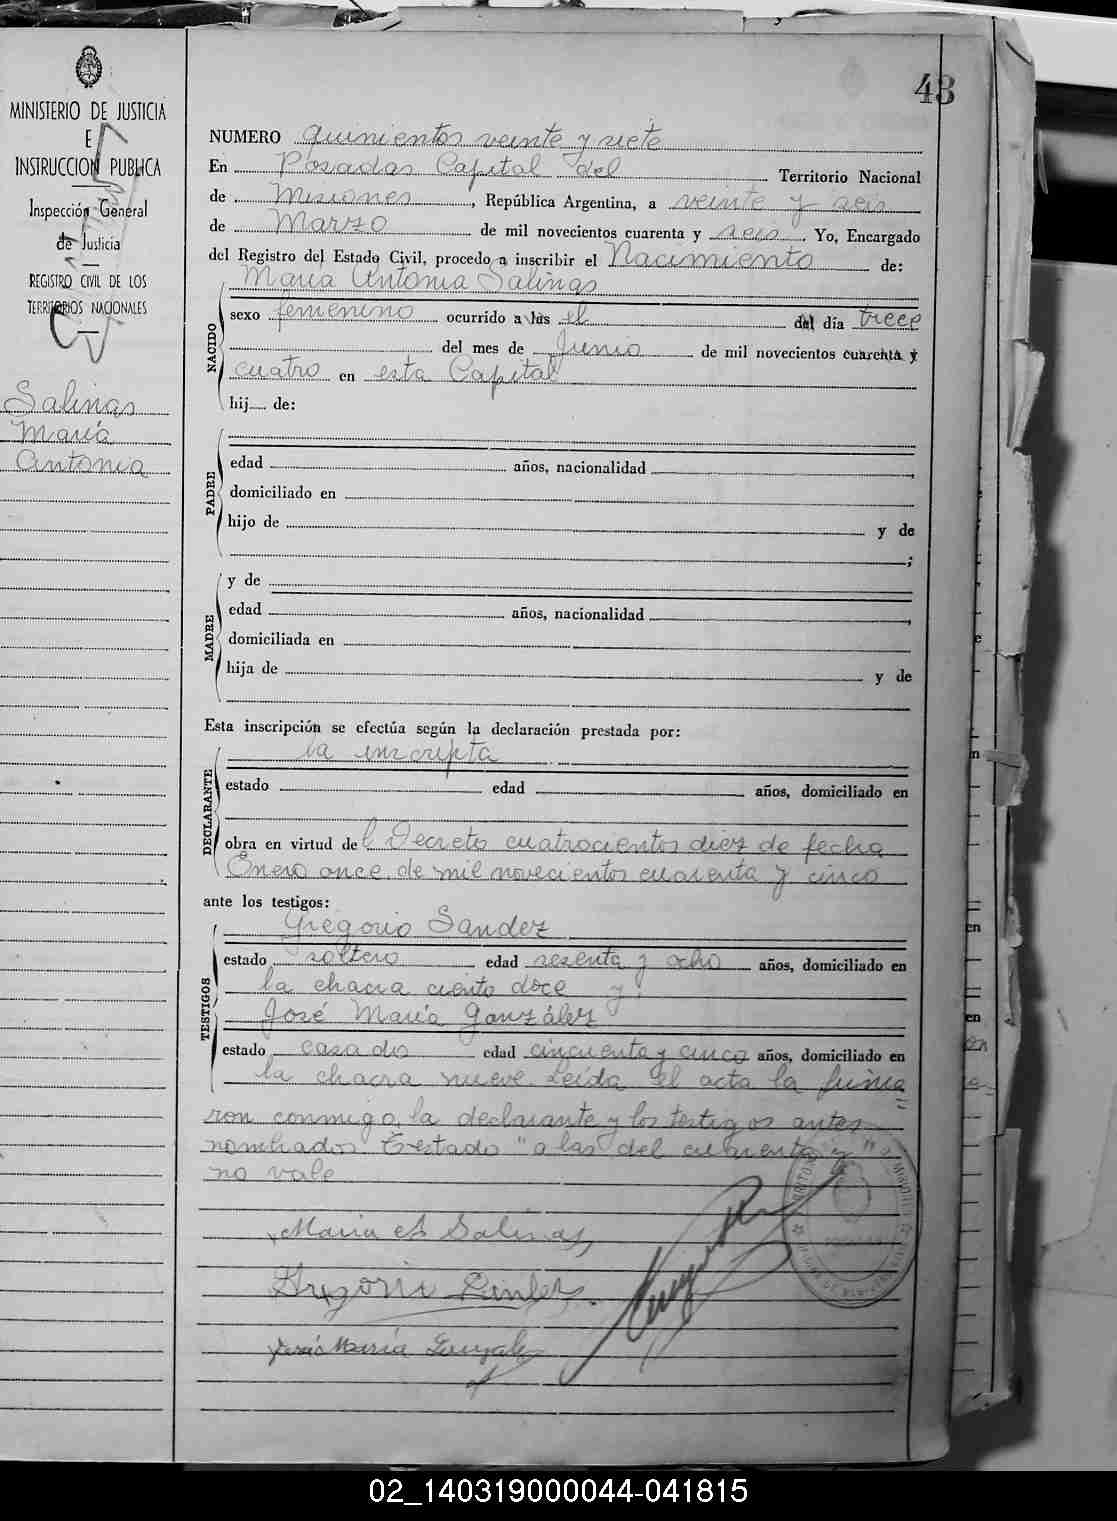 43
MINISTERIO DE JUSTICIA
E
INSTRUCCION PUBLICA
Inspección General
de Justicia
REGISTRO CIVIL DE LOS
TERRITORIOS NACIONALES
Salinas
María
Antonia
NUMERO quinientos veinte y siete
En Posadas Capital del Territorio Nacional
de Misiones, República Argentina, a veinte y seis
de Marzo de mil novecientos cuarenta y seis. Yo, Encargado
del Registro del Estado Civil, procedo a inscribir el Nacimiento de:
María Antonia Salinas
NACIDO
sexo femenino ocurrido a las el del día trece
del mes de Junio de mil novecientos cuarenta y
cuatro en esta Capital
hij de:
PADRE
edad años, nacionalidad
domiciliado en
hijo de y de
;
MADRE
y de
edad años, nacionalidad
domiciliada en
hija de y de
Esta inscripción se efectúa según la declaración prestada por:
la inscripta
DECLARANTE
estado edad años, domiciliado en
obra en virtud del Decreto cuatrocientos diez de fecha
Enero once de mil novecientos cuarenta y cinco
ante los testigos:
Gregorio Sandez
TESTIGOS
estado soltero edad sesenta y ocho años, domiciliado en
la chacra ciento doce y
José María González
estado casado edad cincuenta y cinco años, domiciliado en
la chacra nueve Leída el acta la firma
ron conmigo, la declarante y los testigos antes
nombrados. Testado "a las del cuarenta y"
no vale
María A Salinas
José María
02_140319000044-041815